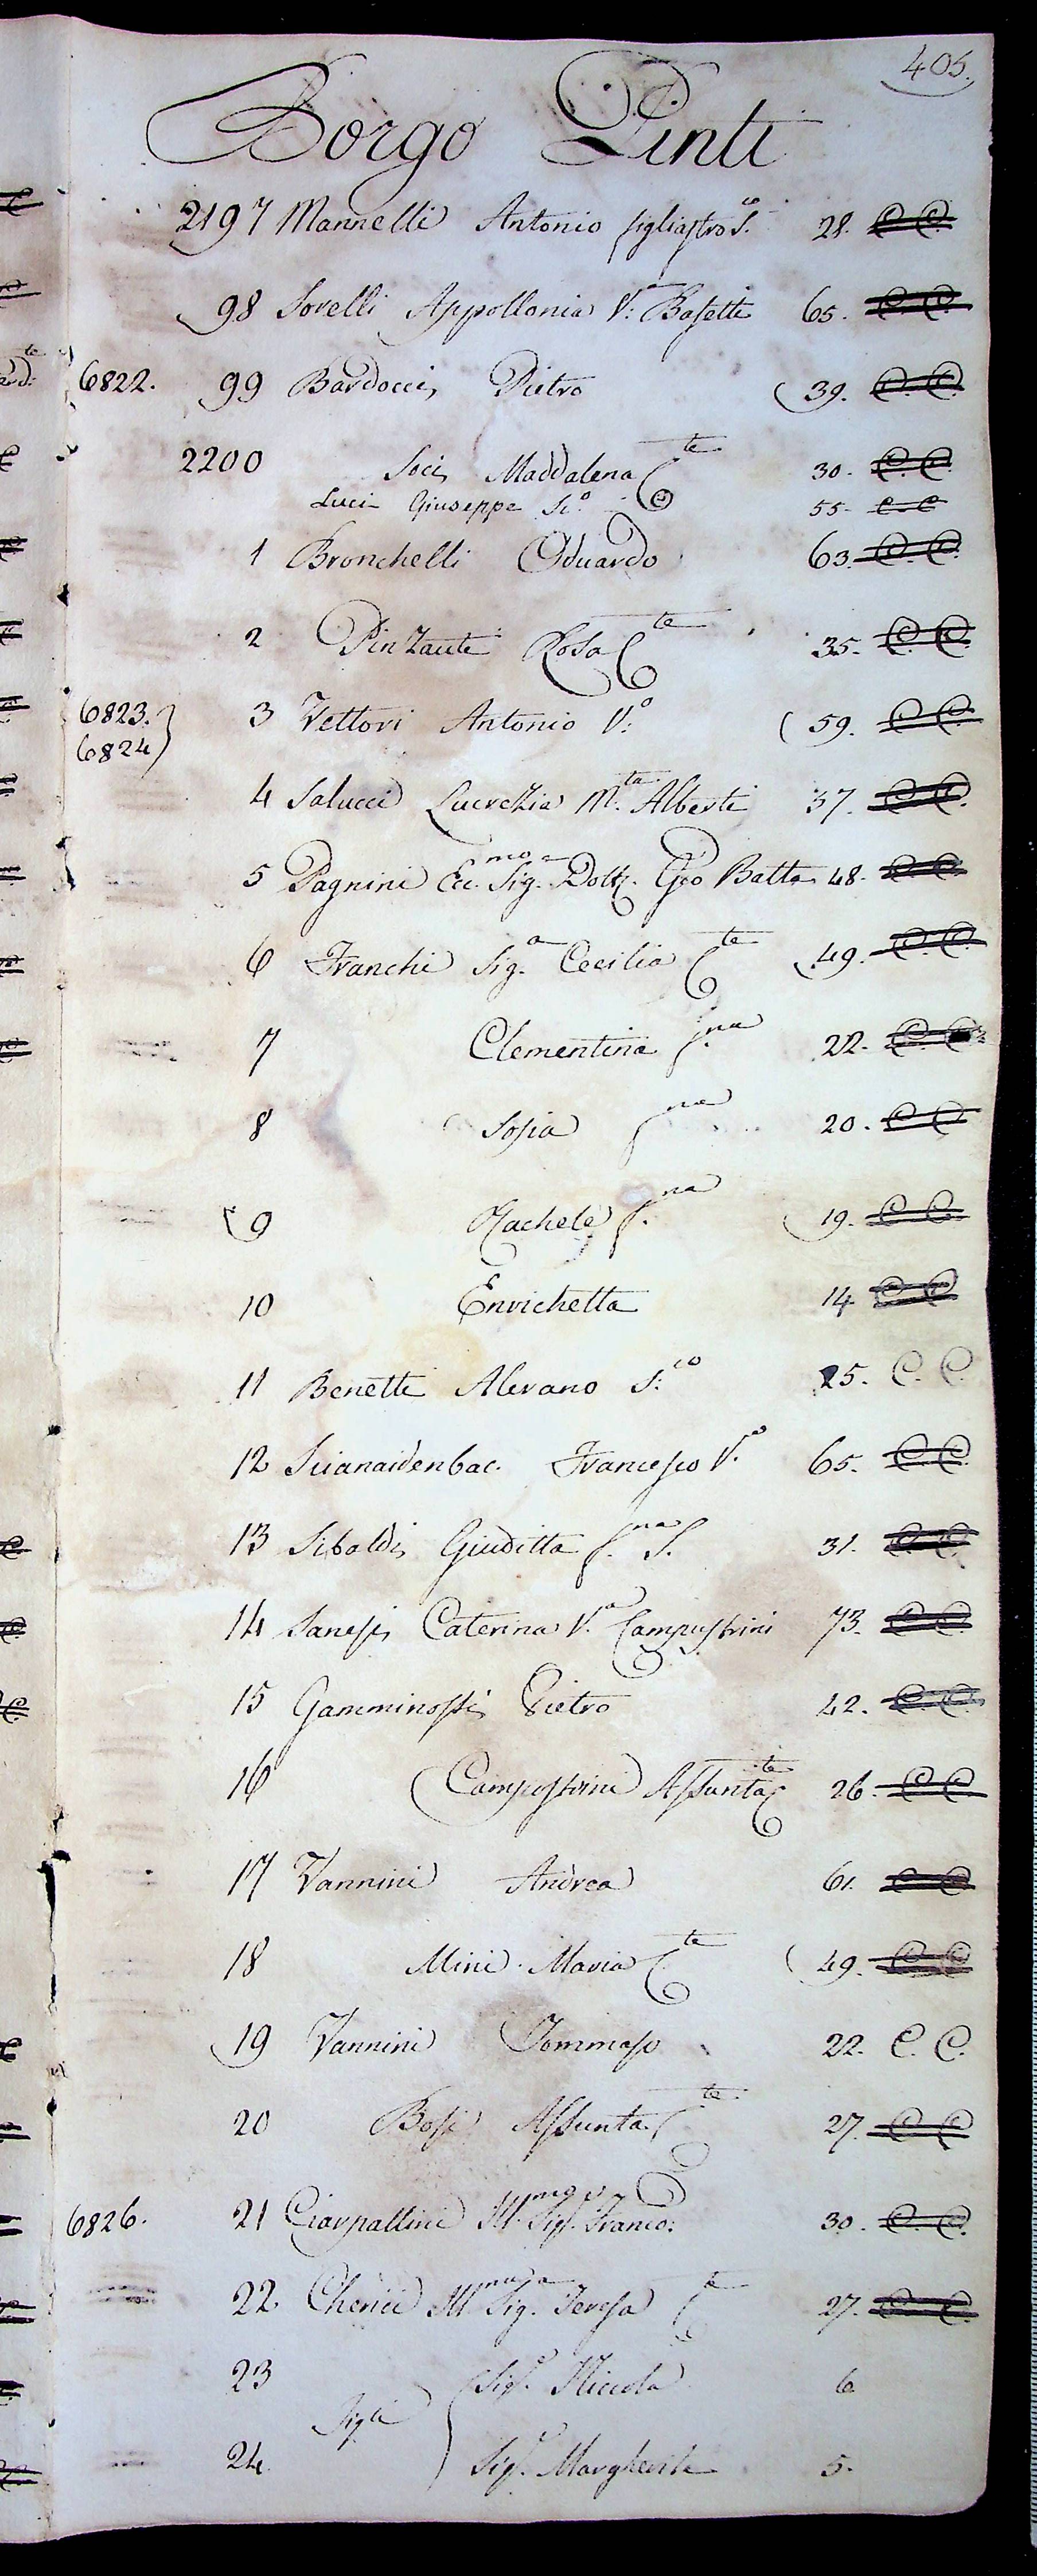 405.
Borgo Pinti
2197 Mannelli Antonio figliastro S.co 28. C. C.
98 Sorelli Appollonia V.a Basetti 65. C. C.
6822. 99 Bardocci Pietro 39. C. C.
2200 Soci Maddalena C.te 30. C. C.
Luci Giuseppe Sc.o 55. C. C
1 Bronchelli Oduardo 63. C. C.
2 Pinzauti Rosa C.te 35. C. C.
6823. 3 Vettori Antonio V.o 59. C. C.
6824
4 Salucci Lucrezia M.ta Alberti 37. C. C.
5 Pagnini Ecc.mo Sig. Dott. Gio Batta 48. C. C.
6 Franchi Sig.a Cecilia C.te 49. C. C.
7 Clementina f.na 22. C. C.
8 Sofia f.na 20. C. C
9 Rachele f.na 19. C. C.
10 Enrichetta 14 C. C
11 Benetti Alerano S.co 25. C. C.
12 Scianaidenbac. Francesco V.o 65. C. C.
13 Sibaldi Giuditta f.na S. 31. C. C.
14 Sanesi Caterina V.a Campostrini 73. C. C.
15 Gamminossi Pietro 42. C. C.
16 Campostrini Assunta C.te 26. C. C.
17 Vannini Andrea 61. C. C.
18 Mini Maria C.te 49. C. C
19 Vannini Tommaso 22. C. C.
20 Bosi Assunta C.te 27. C. C
6826. 21 Ciarpallini Ill.mo Sig. Franco: 30. C. C.
22 Cherici Ill.ma Sig.a Teresa C.te 27. C. C.
23 Sig.e Niccola 6
Figli
24 Sig.a Margherita 5.